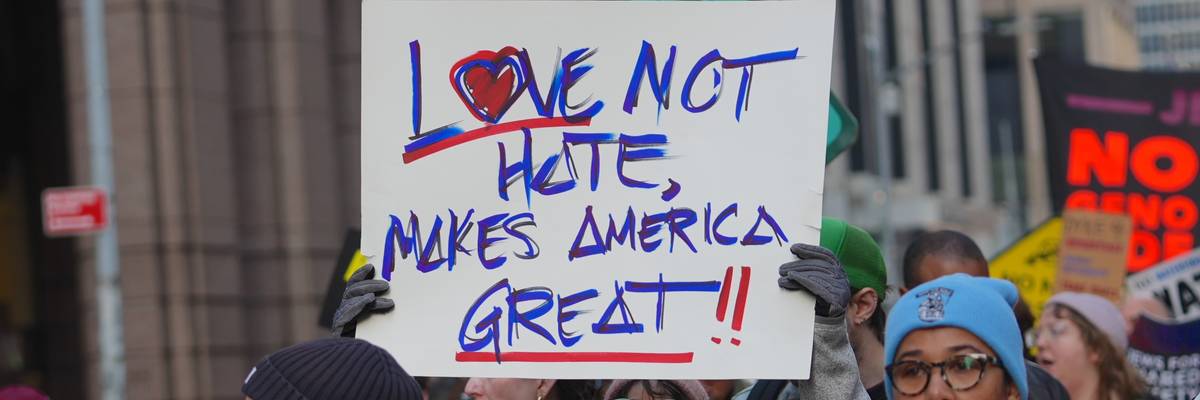 LOVE NOT
HATE,
MAKES AMERICA
GREAT!!
NO
GENO
DE